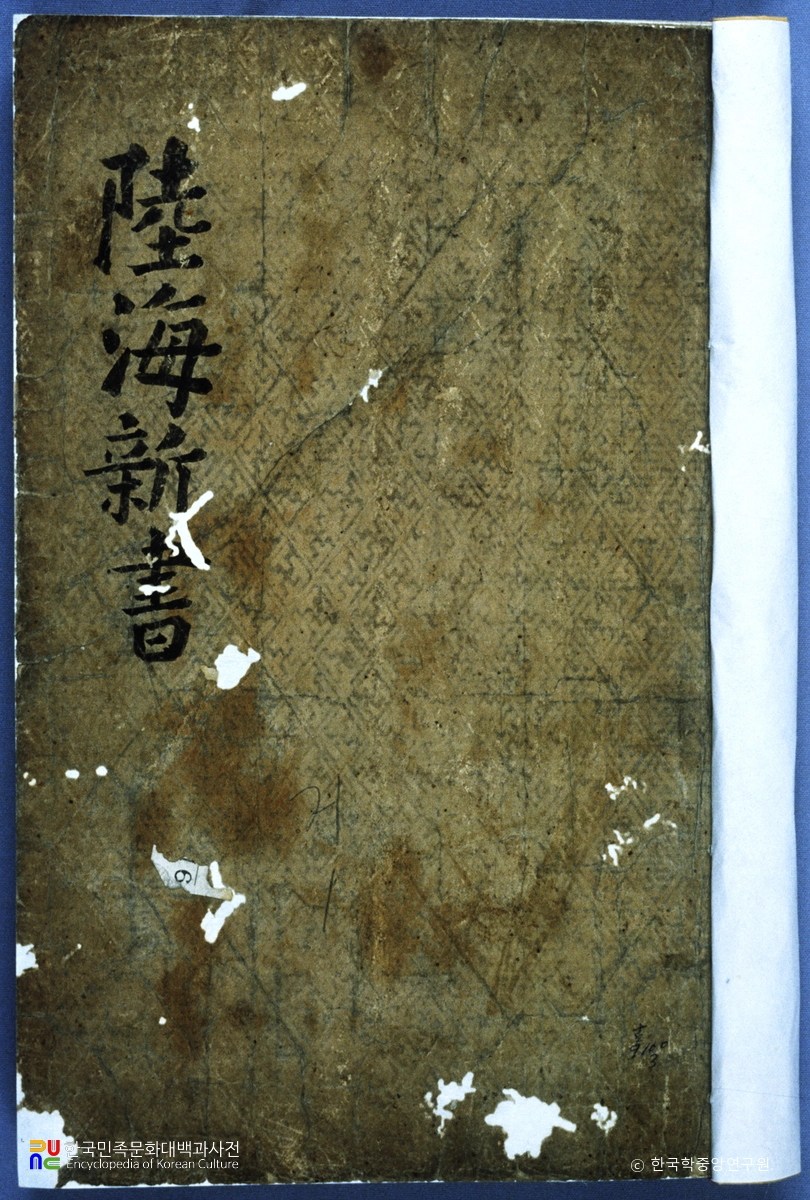 陸海新書
거
1
6
한국민족문화대백과사전
Encyclopedia of Korean Culture
© 한국학중앙연구원